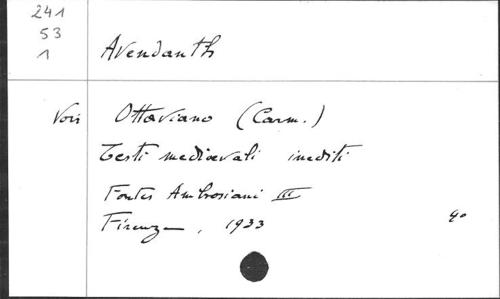 241
53
1
Avendanth
Voir Ottaviano (Carm.)
Testi medioevali inediti
Fontes Ambrosiani III
Firenze, 1933 4°